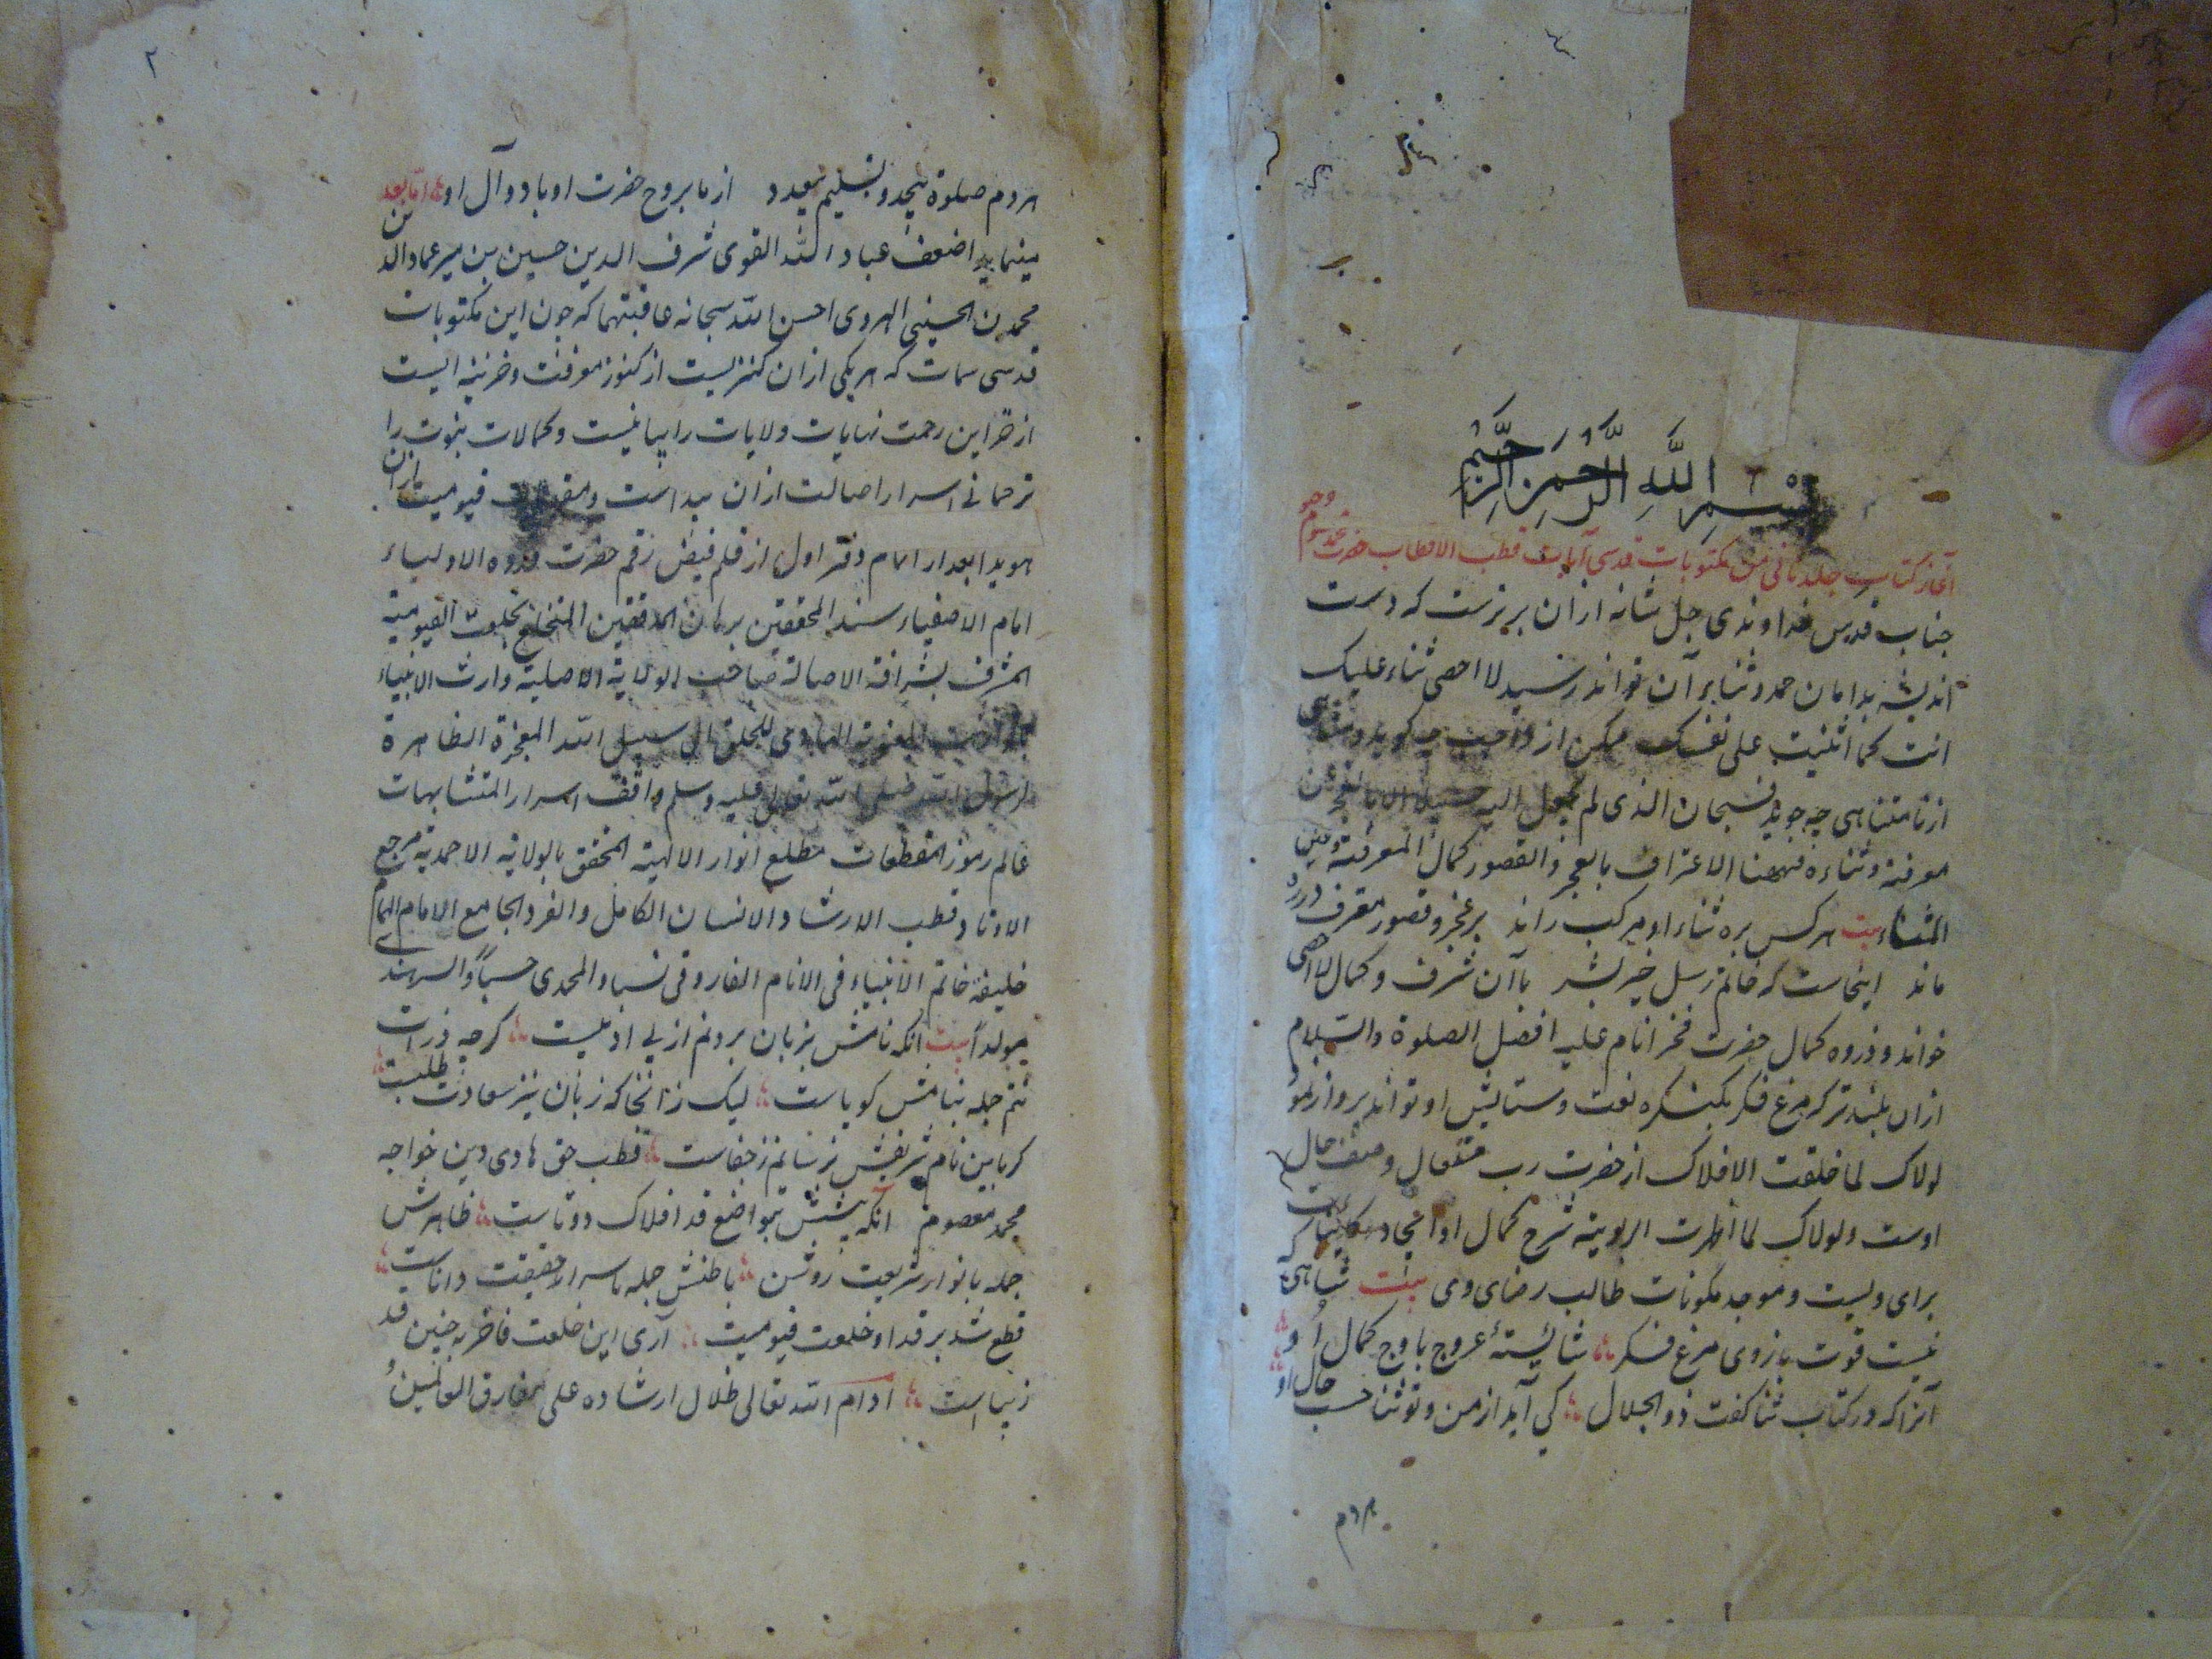 بسم الله الرحمن الرحیم
آغاز کتاب جلد ثانی من مکتوبات قدسی آیات قطب الاقطاب حضرت
جناب قدس خداوندی جل شانه ازان برترست که دست
اندیشه بدامان حمد و ثنا بر آن تواند رسید لا احصی ثناء علیک
انت کما اثنیت علی نفسک ممکن از واجب چه گوید و متناهی
از نا متناهی چه جوید فسبحان الذی لم یجعل الیه سبیلا الا بالعجز عن
معرفته و ثناءه فههنا الاعتراف بالعجز و القصور کمال المعرفته و عین
الثناء بیت هر کس بره ثناء او مرکب راند بر عجز و قصور معترف
ماند اینجاست که خاتم رسل خیر بشر با آن شرف و کمال لا احصی
خواند و ذروه کمال حضرت فخر انام علیه افضل الصلوة والسلام
ازان بلندتر که مرغ فکر بکنگره نعت و ستایش او تواند پرواز نمود
لولاک لما خلقت الافلاک از حضرت رب متعال وصف حال
اوست و لولاک لما اظهرت الربوبیة شرح کمال او ایجاد کاینات
برای ویست و موجد مکونات طالب رضای وی بیت شاهی که
نیست قوت بازوی مرغ فکر شایستهٔ عروج باوج کمال او
آنرا که در کتاب ثنا گفت ذو الجلال کی آید از من و تو ثنا حسب حال او
هردم
۲
هردم صلوة بیحد و تسلیم بیعدد از ما بروح حضرت او باد و آل او اما بعد
مینماید اضعف عباد الله القوی شرف الدین حسین بن میر عماد الدین
محمد ن الحسینی الهروی احسن الله سبحانه عاقبتهما که چون این مکتوبات
قدسی سمات که هریکی ازان کنزیست از کنوز معرفت و خزینه ایست
از خزاین رحمت نهایات ولایات را بیانیست و کمالات نبوت را
ترجمانی اسرار اصالت ازان پیداست و قیومیت ازان
هویدا بعد از اتمام دفتر اول از قلم فیض رقم حضرت قدوه الاولیاء
امام الاصفیاء سند المحققین برهان المدققین المتخلع بخلعت القیومیة
المشرف بشرافة الاصالة صاحب الولایة الاصلیة وارث الانبیاء
الهادی للخلق الی سبیل الله المعجزة الظاهرة
لرسول الله صلی الله تعالی علیه وسلم واقف اسرار المتشابهات
عالم رموز المقطعات مطلع انوار الالهیة المحقق بالولایة الاحمدیة مرجع
الاوتاد قطب الارشاد الانسان الکامل و الفرد الجامع الامام الهمام
خلیفة خاتم الانبیاء فی الانام الفاروقی نسبا و المحمدی حسباً و السهرندی
مولداً بیت آنکه نامش بزبان بردنم از بی ادبیست گرچه ذرات
تنم جمله بنامش گویاست لیک زانجا که زبان نیز سعادت طلبست
گر باین نام شریفش نرسانم ز جفاست قطب حق هادی دین خواجه
محمد معصوم آنکه پیشش بتواضع قد افلاک دوتاست ظاهرش
جمله بانوار شریعت روشن باطنش جمله باسرار حقیقت داناست
قطع شد بر قد او خلعت قیومیت آری این خلعت فاخر به چنین قد
زیباست ادام الله تعالی ظلال ارشاده علی مفارق العالمین